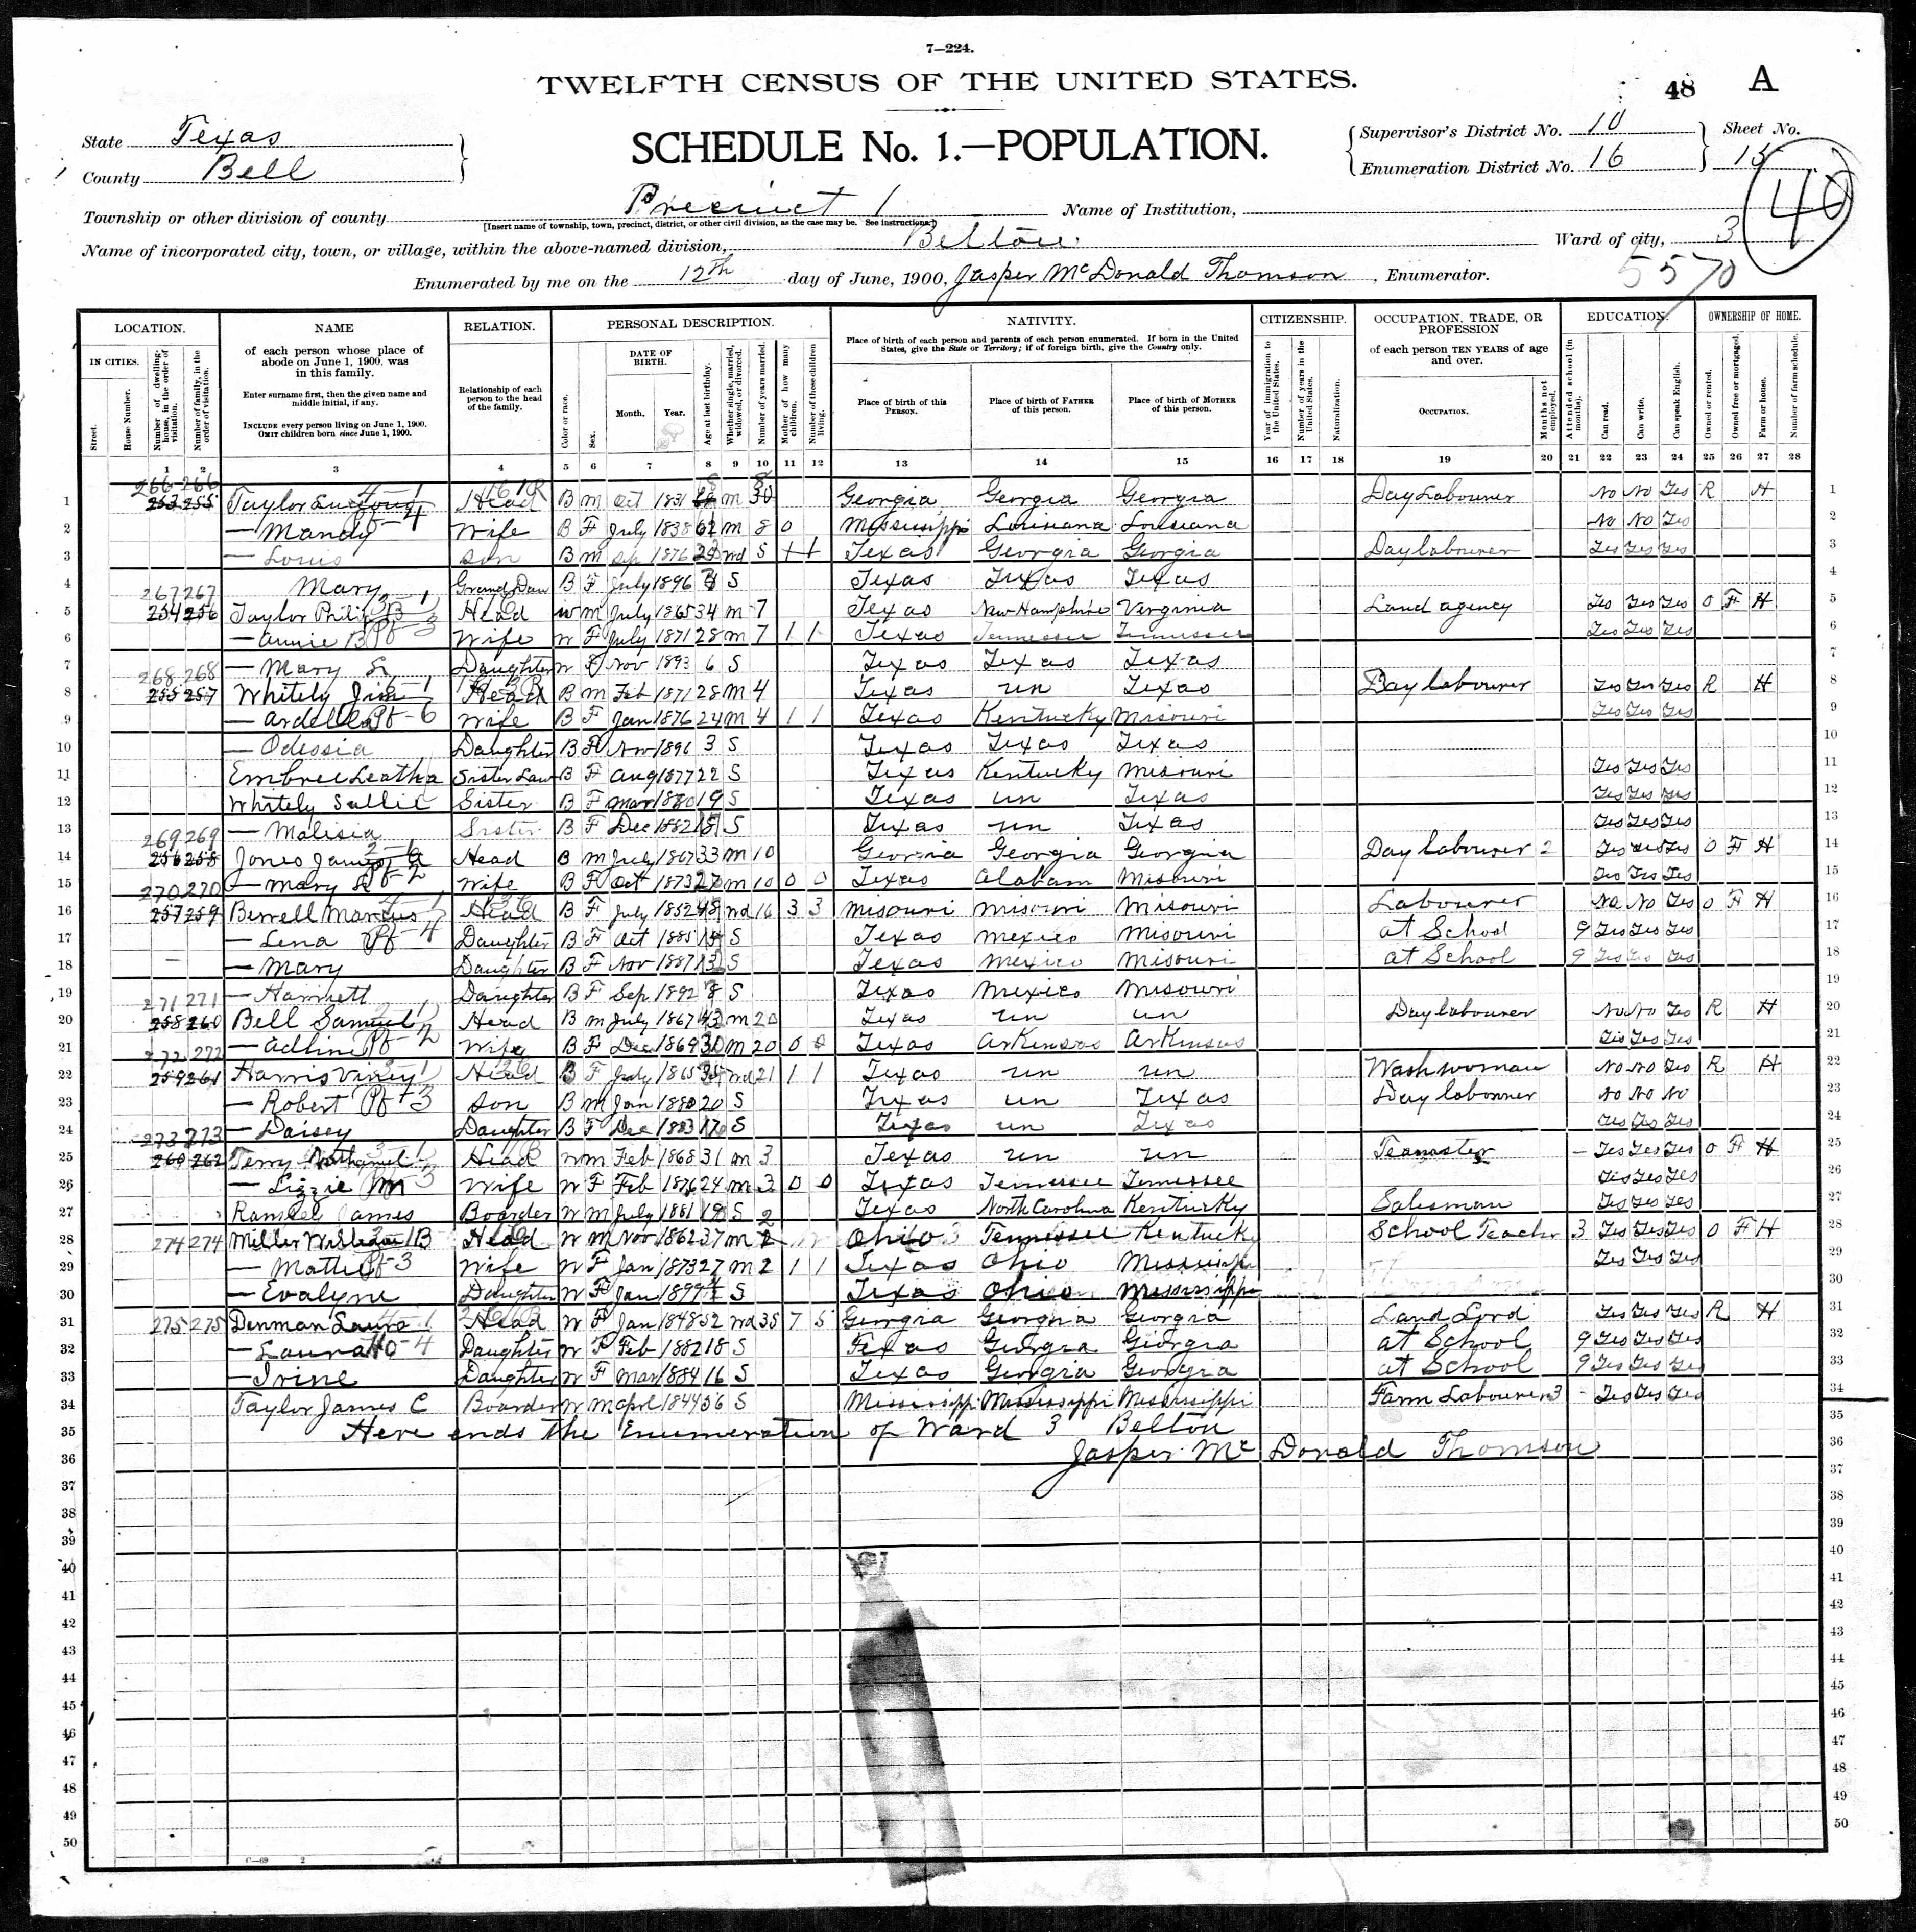 7—224.
TWELFTH CENSUS OF THE UNITED STATES.
48 A
SCHEDULE No. 1.—POPULATION.
State Texas
County Bell
Supervisor's District No. 10
Enumeration District No. 16
Sheet No.
15
40
Township or other division of county Precinct 1
[Insert name of township, town, precinct, district, or other civil division, as the case may be. See instructions.]
Name of Institution,
Name of incorporated city, town, or village, within the above-named division, Belton
Ward of city, 3
Enumerated by me on the 12th day of June, 1900, Jasper Mc Donald Thomson, Enumerator.
5570
LOCATION. NAME RELATION. PERSONAL DESCRIPTION. NATIVITY. CITIZENSHIP. OCCUPATION, TRADE, OR PROFESSION EDUCATION. OWNERSHIP OF HOME.
IN CITIES.
Street.
House Number.
Number of dwelling-house, in the order of visitation.
Number of family, in the order of visitation.
of each person whose place of abode on June 1, 1900, was in this family.
Enter surname first, then the given name and middle initial, if any.
INCLUDE every person living on June 1, 1900.
OMIT children born since June 1, 1900.
Relationship of each person to the head of the family.
Color or race.
Sex.
DATE OF BIRTH.
Month. Year.
Age at last birthday.
Whether single, married, widowed, or divorced.
Number of years married.
Mother of how many children.
Number of these children living.
Place of birth of each person and parents of each person enumerated. If born in the United States, give the State or Territory; if of foreign birth, give the Country only.
Place of birth of this PERSON.
Place of birth of FATHER of this person.
Place of birth of MOTHER of this person.
Year of immigration to the United States.
Number of years in the United States.
Naturalization.
of each person TEN YEARS of age and over.
OCCUPATION.
Months not employed.
Attended school (in months).
Can read.
Can write.
Can speak English.
Owned or rented.
Owned free or mortgaged.
Farm or house.
Number of farm schedule.
1 2 3 4 5 6 7 8 9 10 11 12 13 14 15 16 17 18 19 20 21 22 23 24 25 26 27 28
1 266 266 253 255 Taylor Head B m Oct 1831 m 30 Georgia Georgia Georgia Day Labourer No No Yes R H 1
2 — Mandy Wife B F July 1838 62 m 8 0 Mississippi Louisiana Louisiana No No Yes 2
3 — Louis Son B m Sep 1876 wd 5 Texas Georgia Georgia Day labourer Yes Yes Yes 3
4 Mary Grand Dau B F July 1896 S Texas Texas Texas 4
5 267 267 254 256 Taylor Philip B Head W m July 1865 34 m 7 Texas New Hampshire Verginia Land agency Yes Yes Yes O F H 5
6 — Annie B Wife W F July 1871 28 m 7 1 1 Texas Tennessee Tennessee Yes Yes Yes 6
7 — Mary Daughter W F Nov 1893 6 S Texas Texas Texas 7
8 268 268 255 257 Whitely Jim Head B m Feb 1871 28 m 4 Texas un Texas Day labourer Yes Yes Yes R H 8
9 — Ardella Wife B F Jan 1876 24 m 4 1 1 Texas Kentucky Misouri Yes Yes Yes 9
10 — Odessia Daughter B F Nov 1896 3 S Texas Texas Texas 10
11 Embree Leatha Sister Law B F Aug 1877 22 S Texas Kentucky Misouri Yes Yes Yes 11
12 Whitely Sallie Sister B F Mar 1880 19 S Texas un Texas Yes Yes Yes 12
13 — Malisia Sister B F Dec 1882 S Texas un Texas Yes Yes Yes 13
14 269 269 256 258 Jones James Head B m July 1867 33 m 10 Georgia Georgia Georgia Day labourer 2 Yes Yes Yes O F H 14
15 — Mary Wife B F Oct 1873 m 10 0 0 Texas Alabam Misouri Yes Yes Yes 15
16 270 270 257 259 Head B F July 1852 48 wd 16 3 3 Misouri Misouri Misouri Labourer No No Yes O F H 16
17 — Lena Daughter B F Oct 1885 S Texas Mexico Misouri at School 9 Yes Yes Yes 17
18 — Mary Daughter B F Nov 1887 S Texas Mexico Misouri at School 9 Yes Yes Yes 18
19 — Harriett Daughter B F Sep 1892 8 S Texas Mexico Misouri 19
20 271 271 258 260 Bell Samuel Head B m July 1867 m 20 Texas un un Day labourer No No Yes R H 20
21 — Adline Wife B F Dec 1869 30 m 20 0 0 Texas Arkensas Arkensas Yes Yes Yes 21
22 272 272 259 261 Harris Viney Head B F July 1865 wd 21 1 1 Texas un un Wash woman No No Yes R H 22
23 — Robert Son B m Jan 1880 20 S Texas un Texas Day labourer No No No 23
24 — Daisey Daughter B F Dec 1883 S Texas un Texas Yes Yes Yes 24
25 273 273 260 262 Terry Nathaniel Head W m Feb 1868 31 m 3 Texas un un Teamster — Yes Yes Yes O F H 25
26 — Lizzie M Wife W F Feb 1876 24 m 3 0 0 Texas Tennessee Tennessee Yes Yes Yes 26
27 James Boarder W m July 1881 19 S Texas North Carolina Kenturky Salesman Yes Yes Yes 27
28 274 274 Miller William B Head W m Nov 1862 37 m 2 Ohio Tennessee Kentucky School Teacher 3 Yes Yes Yes O F H 28
29 — Mattie Wife W F Jan 1873 27 m 2 1 1 Texas Ohio Mississippi Yes Yes Yes 29
30 — Evalyne Daughter W F Jan 1899 S Texas Ohio Mississippi 30
31 275 275 Denman Laura Head W F Jan 1848 52 wd 35 7 5 Georgia Georgia Georgia Land Lord Yes Yes Yes R H 31
32 — Laura Daughter W F Feb 1882 18 S Texas Georgia Georgia at School 9 Yes Yes Yes 32
33 — Irine Daughter W F Mar 1884 16 S Texas Georgia Georgia at School 9 Yes Yes Yes 33
34 Taylor James C Boarder W m Aprl 1844 56 S Mississippi Mississippi Mississippi Farm Labourer 3 — Yes Yes Yes 34
35 Here ends the Enumeration of Ward 3 Belton 35
36 Jasper Mc Donald Thomson 36
37 37
38 38
39 39
40 40
41 41
42 42
43 43
44 44
45 45
46 46
47 47
48 48
49 49
50 50